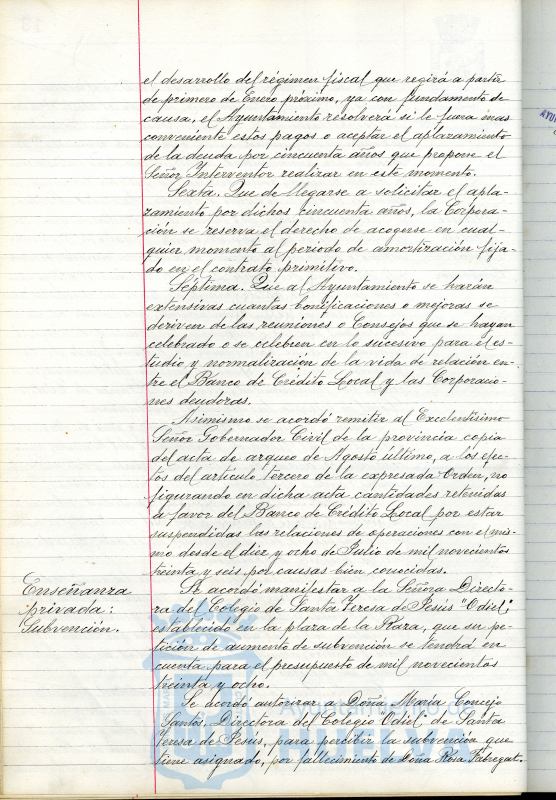 el desarrollo del régimen fiscal que regirá a partir
de primero de Enero próximo, ya con fundamento de
causa, el Ayuntamiento resolverá si le fuera mas
conveniente estos pagos o aceptar el aplazamiento
de la deuda por cincuenta años que propone el
Señor Interventor realizar en este momento.
Sexta. Que de llegarse a solicitar el apla-
zamiento por dichos cincuenta años, la Corpora-
ción se reserva el derecho de acogerse en cual-
quier momento al periodo de amortización fija-
do en el contrato primitivo.
Séptima. Que al Ayuntamiento se harán
extensivas cuantas bonificaciones o mejoras se
deriven de las reuniones o Consejos que se hayan
celebrado o se celebren en lo sucesivo para el es-
tudio y normalización de la vida de relación en-
tre el Banco de Crédito Local y las Corporacio-
nes deudoras.
Asimismo se acordó remitir al Excelentísimo
Señor Gobernador Civil de la provincia copia
del acta de arqueo de Agosto último, a los efec-
tos del artículo tercero de la expresada Orden, no
figurando en dicha acta cantidades retenidas
a favor del Banco de Crédito Local por estar
suspendidas las relaciones de operaciones con el mis-
mo desde el diez y ocho de Julio de mil novecientos
treinta y seis por causas bien conocidas.
Enseñanza
privada:
Subvención.
Se acordó manifestar a la Señora Directo-
ra del Colegio de Santa Teresa de Jesús "Odiel",
establecido en la plaza de la Raza, que su pe-
tición de aumento de subvención se tendrá en
cuenta para el presupuesto de mil novecientos
treinta y ocho.
Se acordó autorizar a Doña María Concejo
Santos, Directora del Colegio Odiel, de Santa
Teresa de Jesús, para percibir la subvención que
tiene asignado, por fallecimiento de Doña Rosa Fabregat.